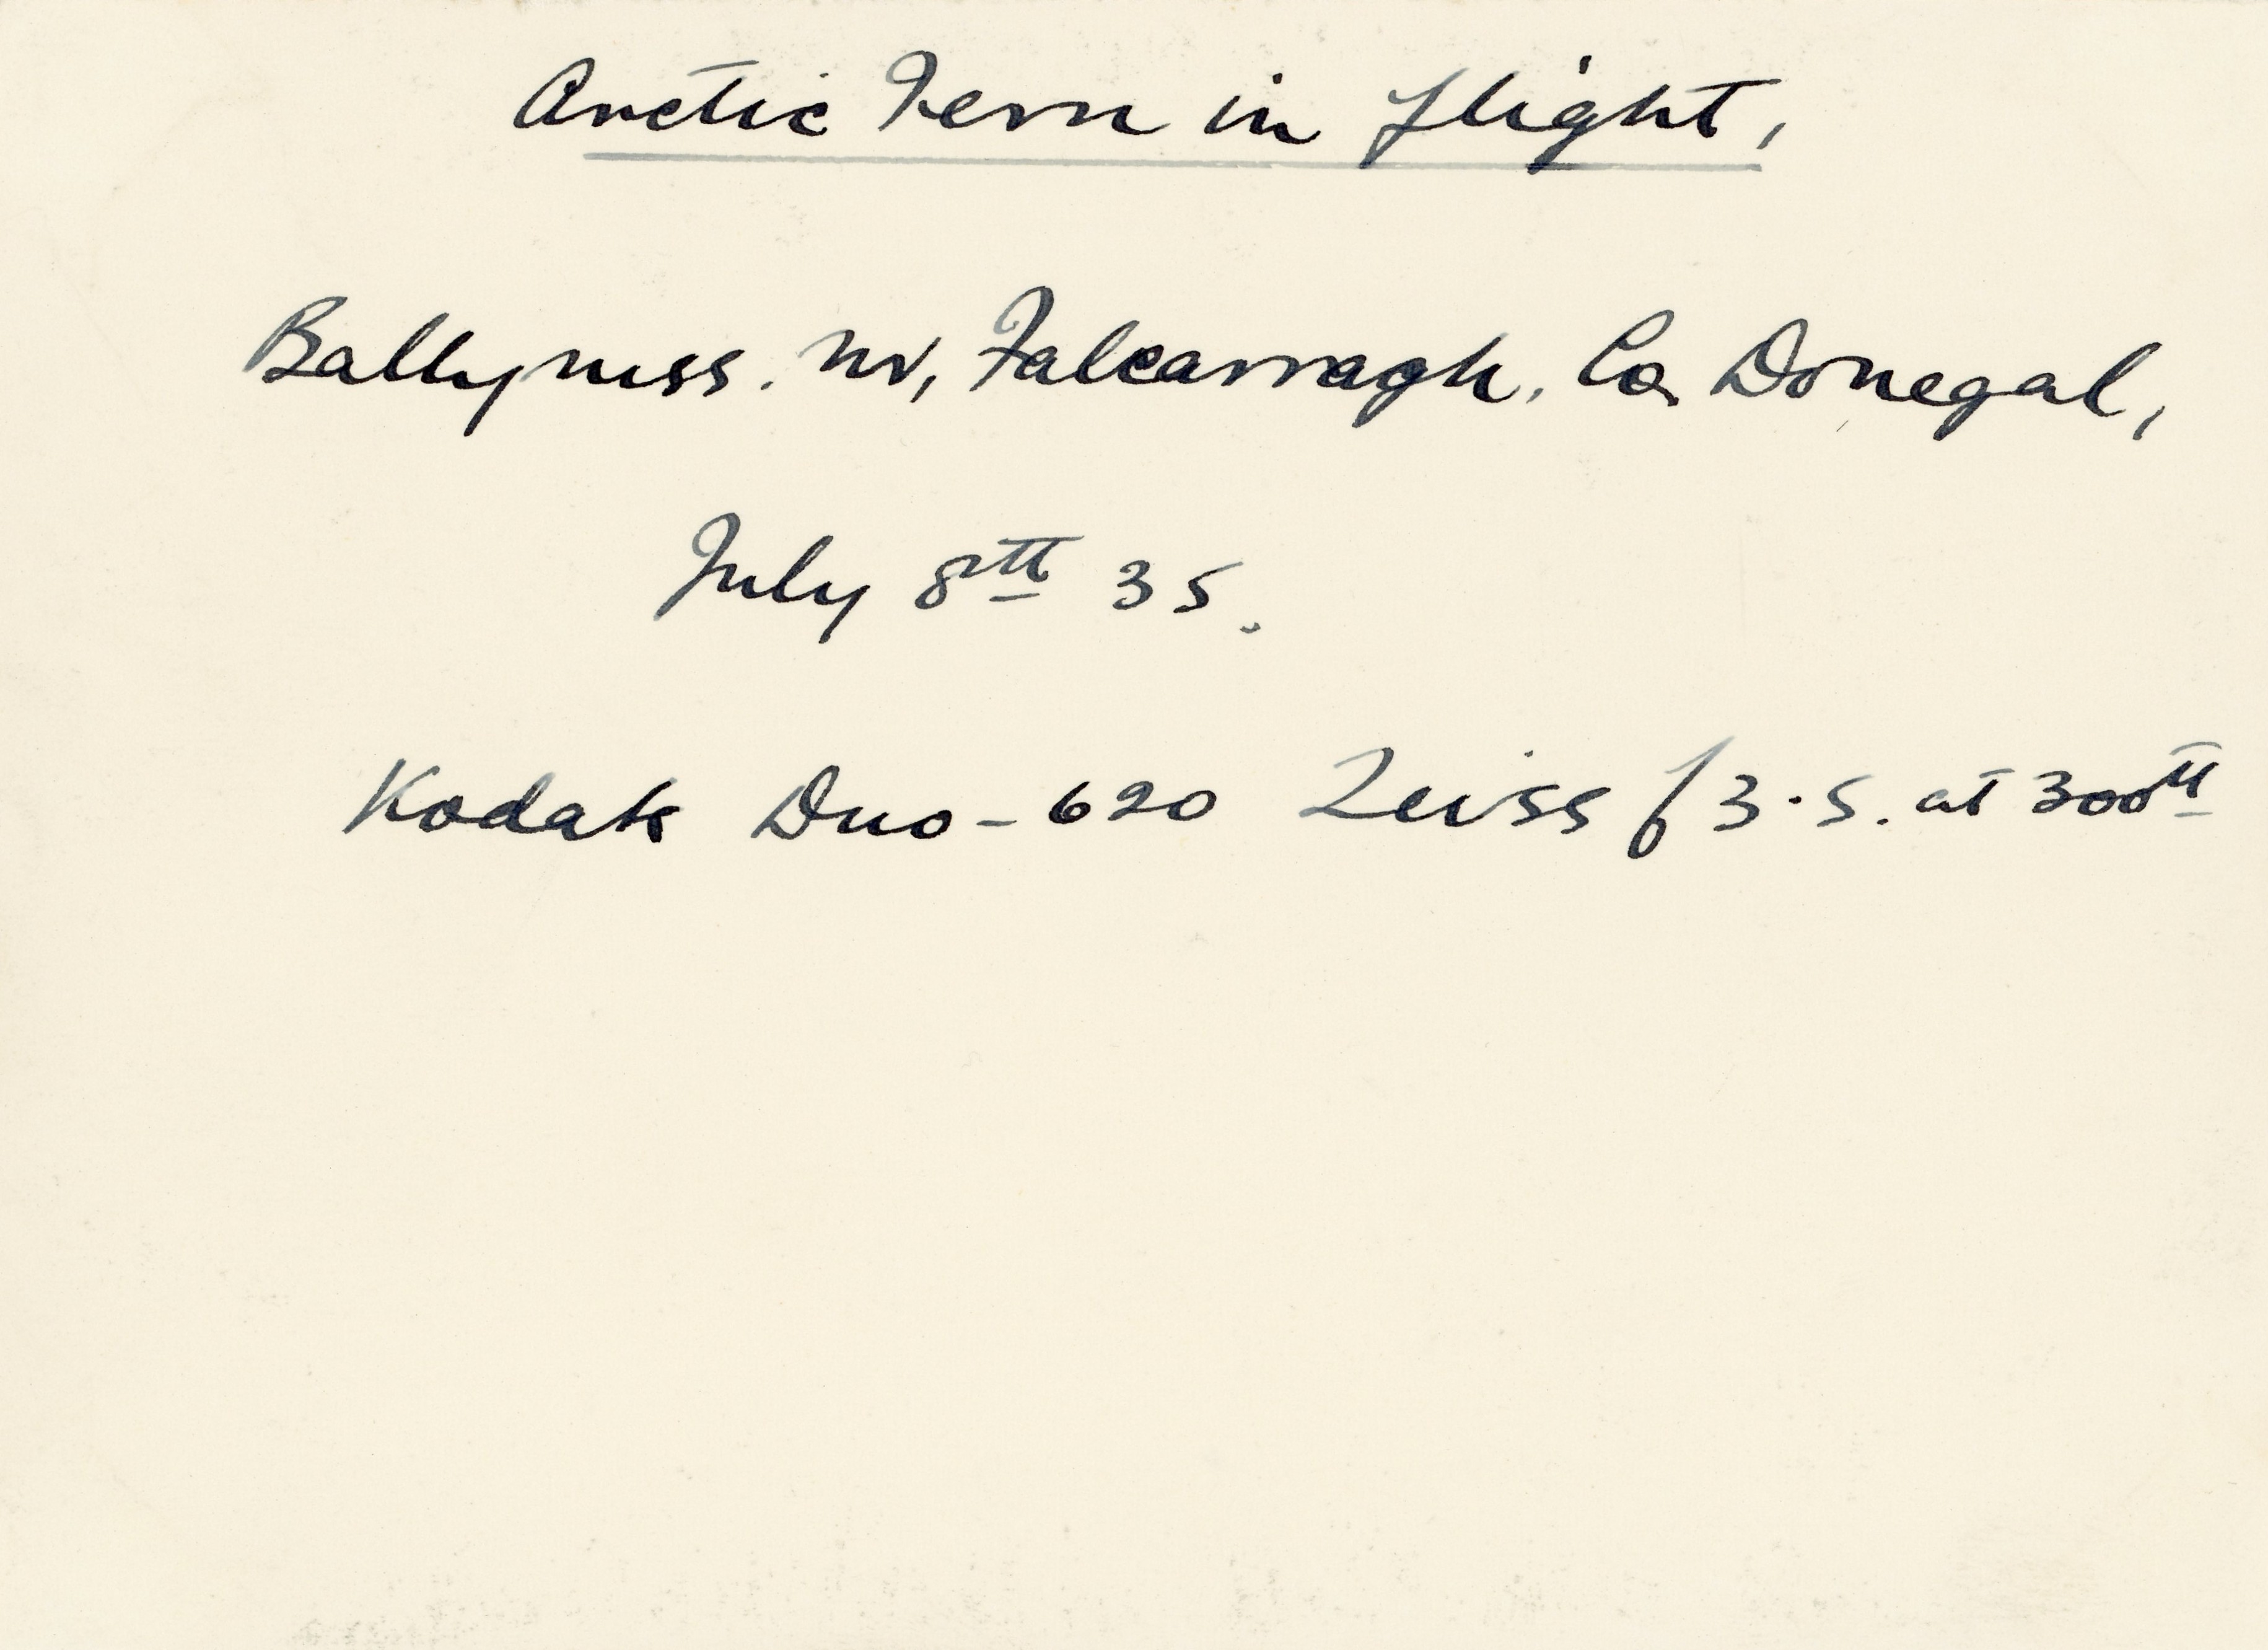 Arctic Tern in flight,
Ballyness. nr, Falcarragh, Co. Donegal,
July 8th 35.
Kodak Duo-620 Zeiss f3.5. at 300th